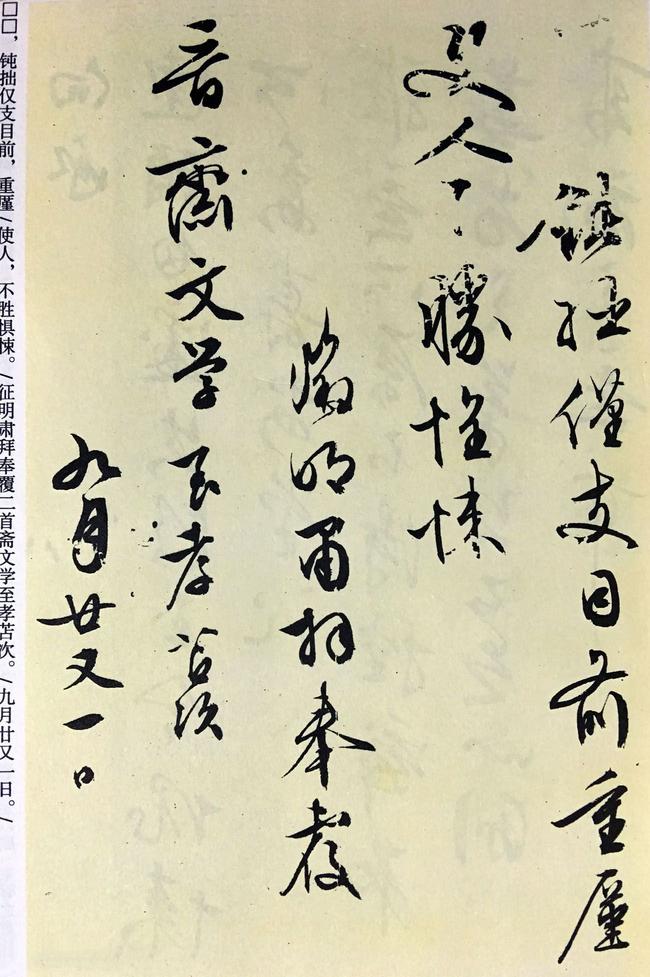 鈍拙僅支目前重廑
使人不勝惶悚
徵明肅拜奉覆
齋文學至孝苫次
九月廿又一日
□□，钝拙仅支目前，重廑/使人，不胜惧悚。/征明肃拜奉覆二首斋文学至孝苫次。/九月廿又一日。/